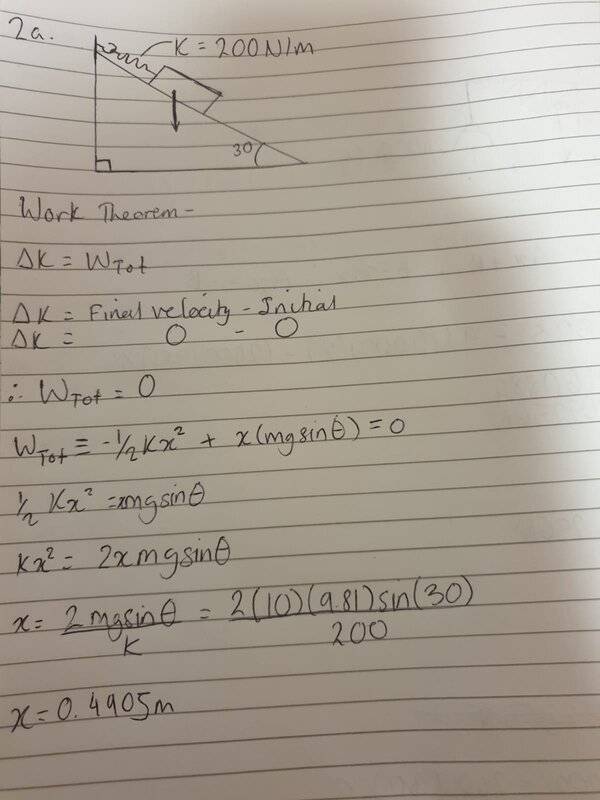 2a.
K = 200N/m
30
Work Theorem -
ΔK = W_Tot
ΔK = Final velocity - Initial
ΔK = 0 - 0
∴ W_Tot = 0
W_Tot = -1/2 Kx² + x(mgsinθ) = 0
1/2 Kx² = xmgsinθ
Kx² = 2xmgsinθ
x = 2mgsinθ/K = 2(10)(9.81)sin(30)/200
x = 0.4905m